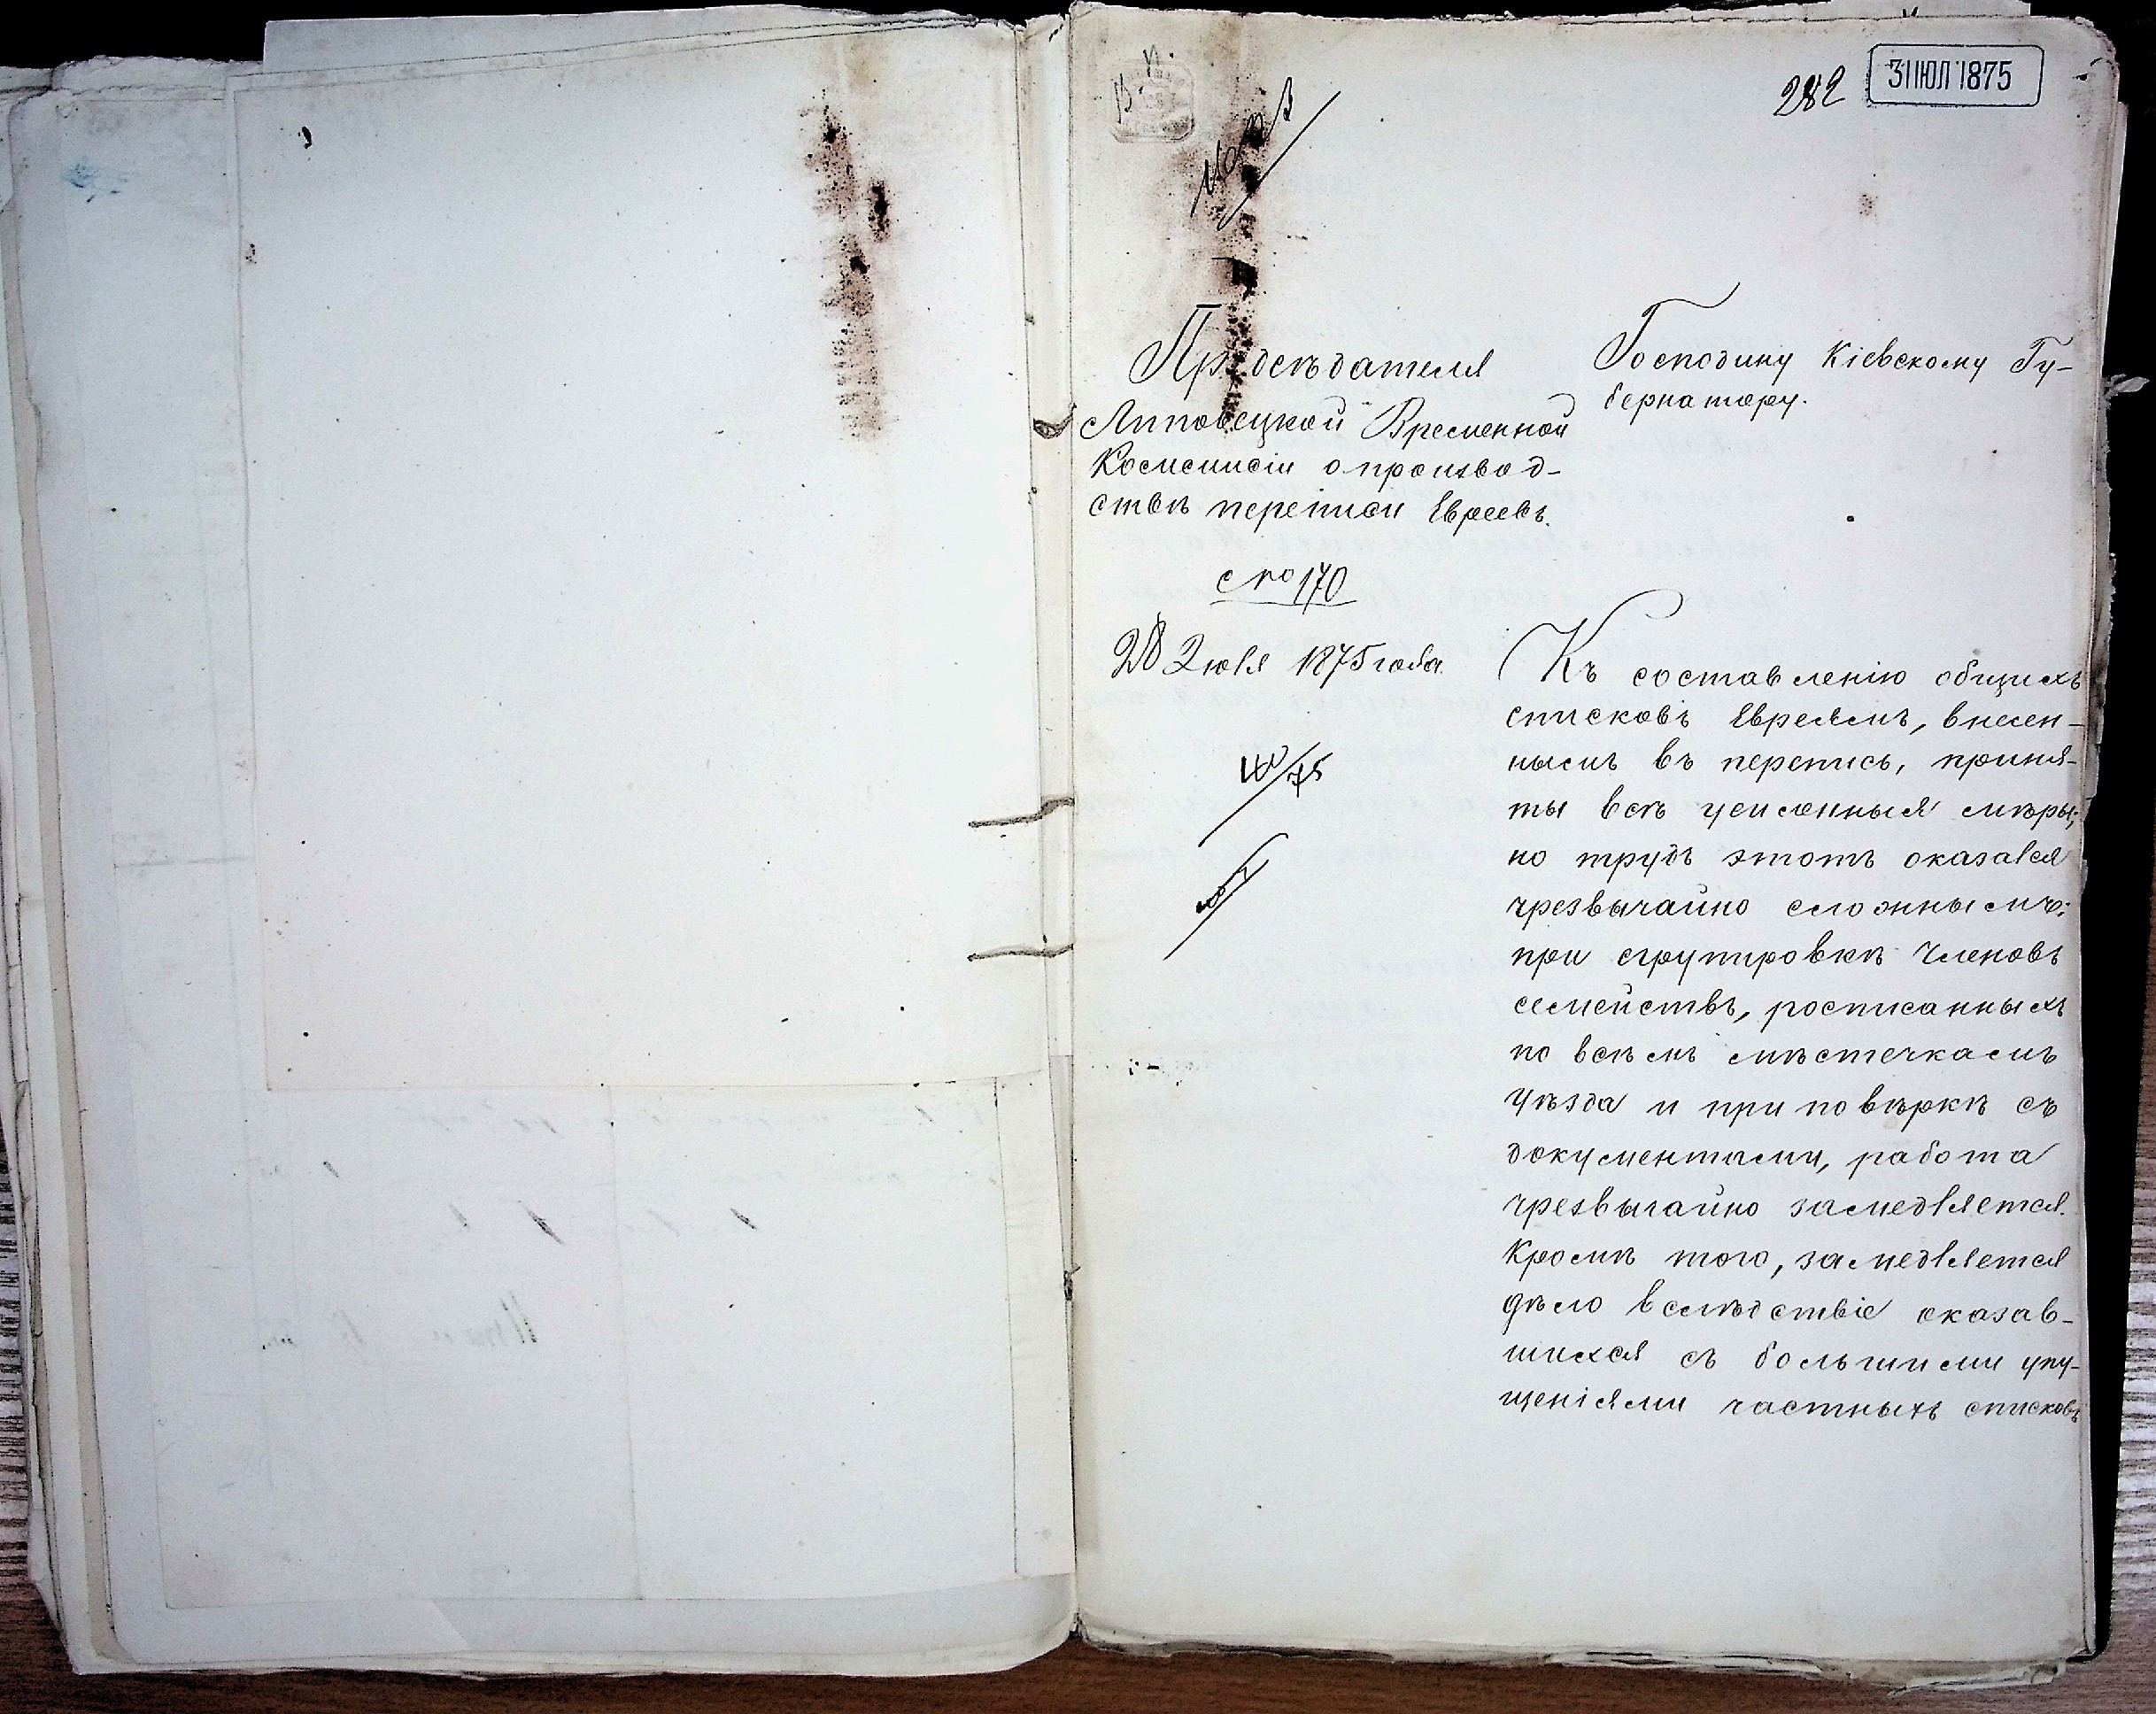 В. п.
282
31 ІЮЛ 1875
Предсѣдателя
Липовецкой Временной
Коммисіи о производ-
ствѣ переписи Евреевъ.
№ 170
28 Іюля 1875 года
Господину Кіевскому Гу-
бернатору.
Къ составленію общихъ
списковъ Евреямъ, внесен-
нымъ въ перепись, приня-
ты всѣ усиленныя мѣры;
но трудъ этотъ оказался
чрезвычайно сложнымъ:
при сгрупировкѣ членовъ
семействъ, росписанныхъ
по всѣмъ мѣстечкамъ
уѣзда и при повѣркѣ съ
документами, работа
чрезвычайно замедляется.
Кромѣ того, замедляется
дѣло вслѣдствіе оказав-
шихся съ большими упу-
щеніями частныхъ списковъ